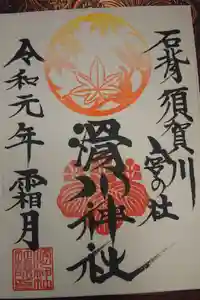 石背 須賀川
宮の社
滑川神社
令和元年 霜月